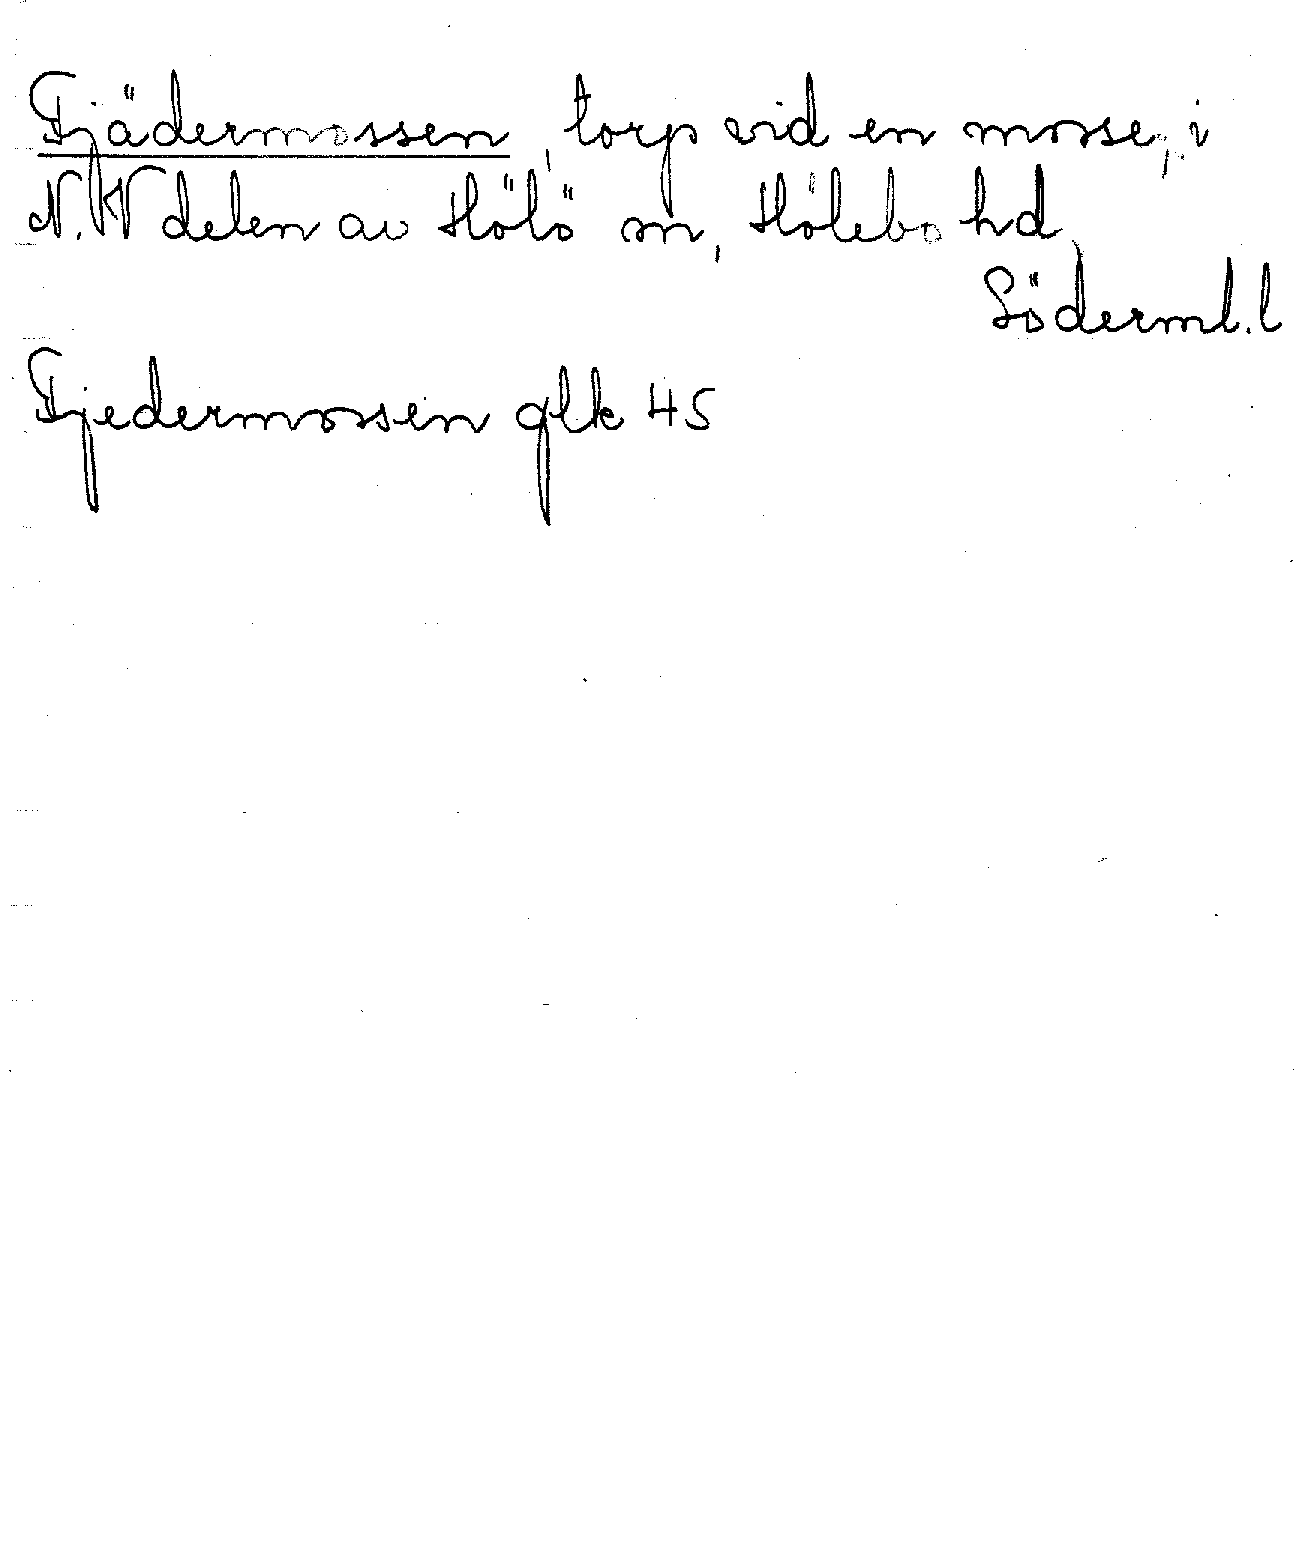 Fjädermossen, torp vid en mosse, i
N.V delen av Hölö sn, Hölebo hd,
Söderml. l
Fjedermossen glk 45